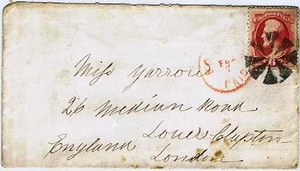 Miss Yarrow
26 Median Road
Lower Clapton
England
London